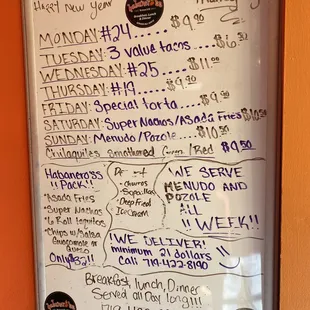 Happy New Year
MONDAY: #24.....$9.90
TUESDAY: 3 value tacos.....$6.
WEDNESDAY: #25.....$11.00
THURSDAY: #19.....$9.90
FRIDAY: Special torta....$9.90
SATURDAY: Super Nachos/Asada Fries
SUNDAY: Menudo/Pozole....$10.50
Chilaquiles smothered Green/Red $9.50
Habanero'ss
!! Pack!!
• Asada Fries
• Super Nachos
• 6 Roll taquitos
• Chips w/ Salsa
Guacamole or
queso
Only $32!!
• Churros
• Sopapillas
• Deep Fried
Ice Cream
WE SERVE
MENUDO AND
POZOLE
ALL
!! WEEK!!
!WE DELIVER!
minimum 21 dollars
Call 719-422-8190
Breakfast, lunch, Dinner
Served all Day long!!!